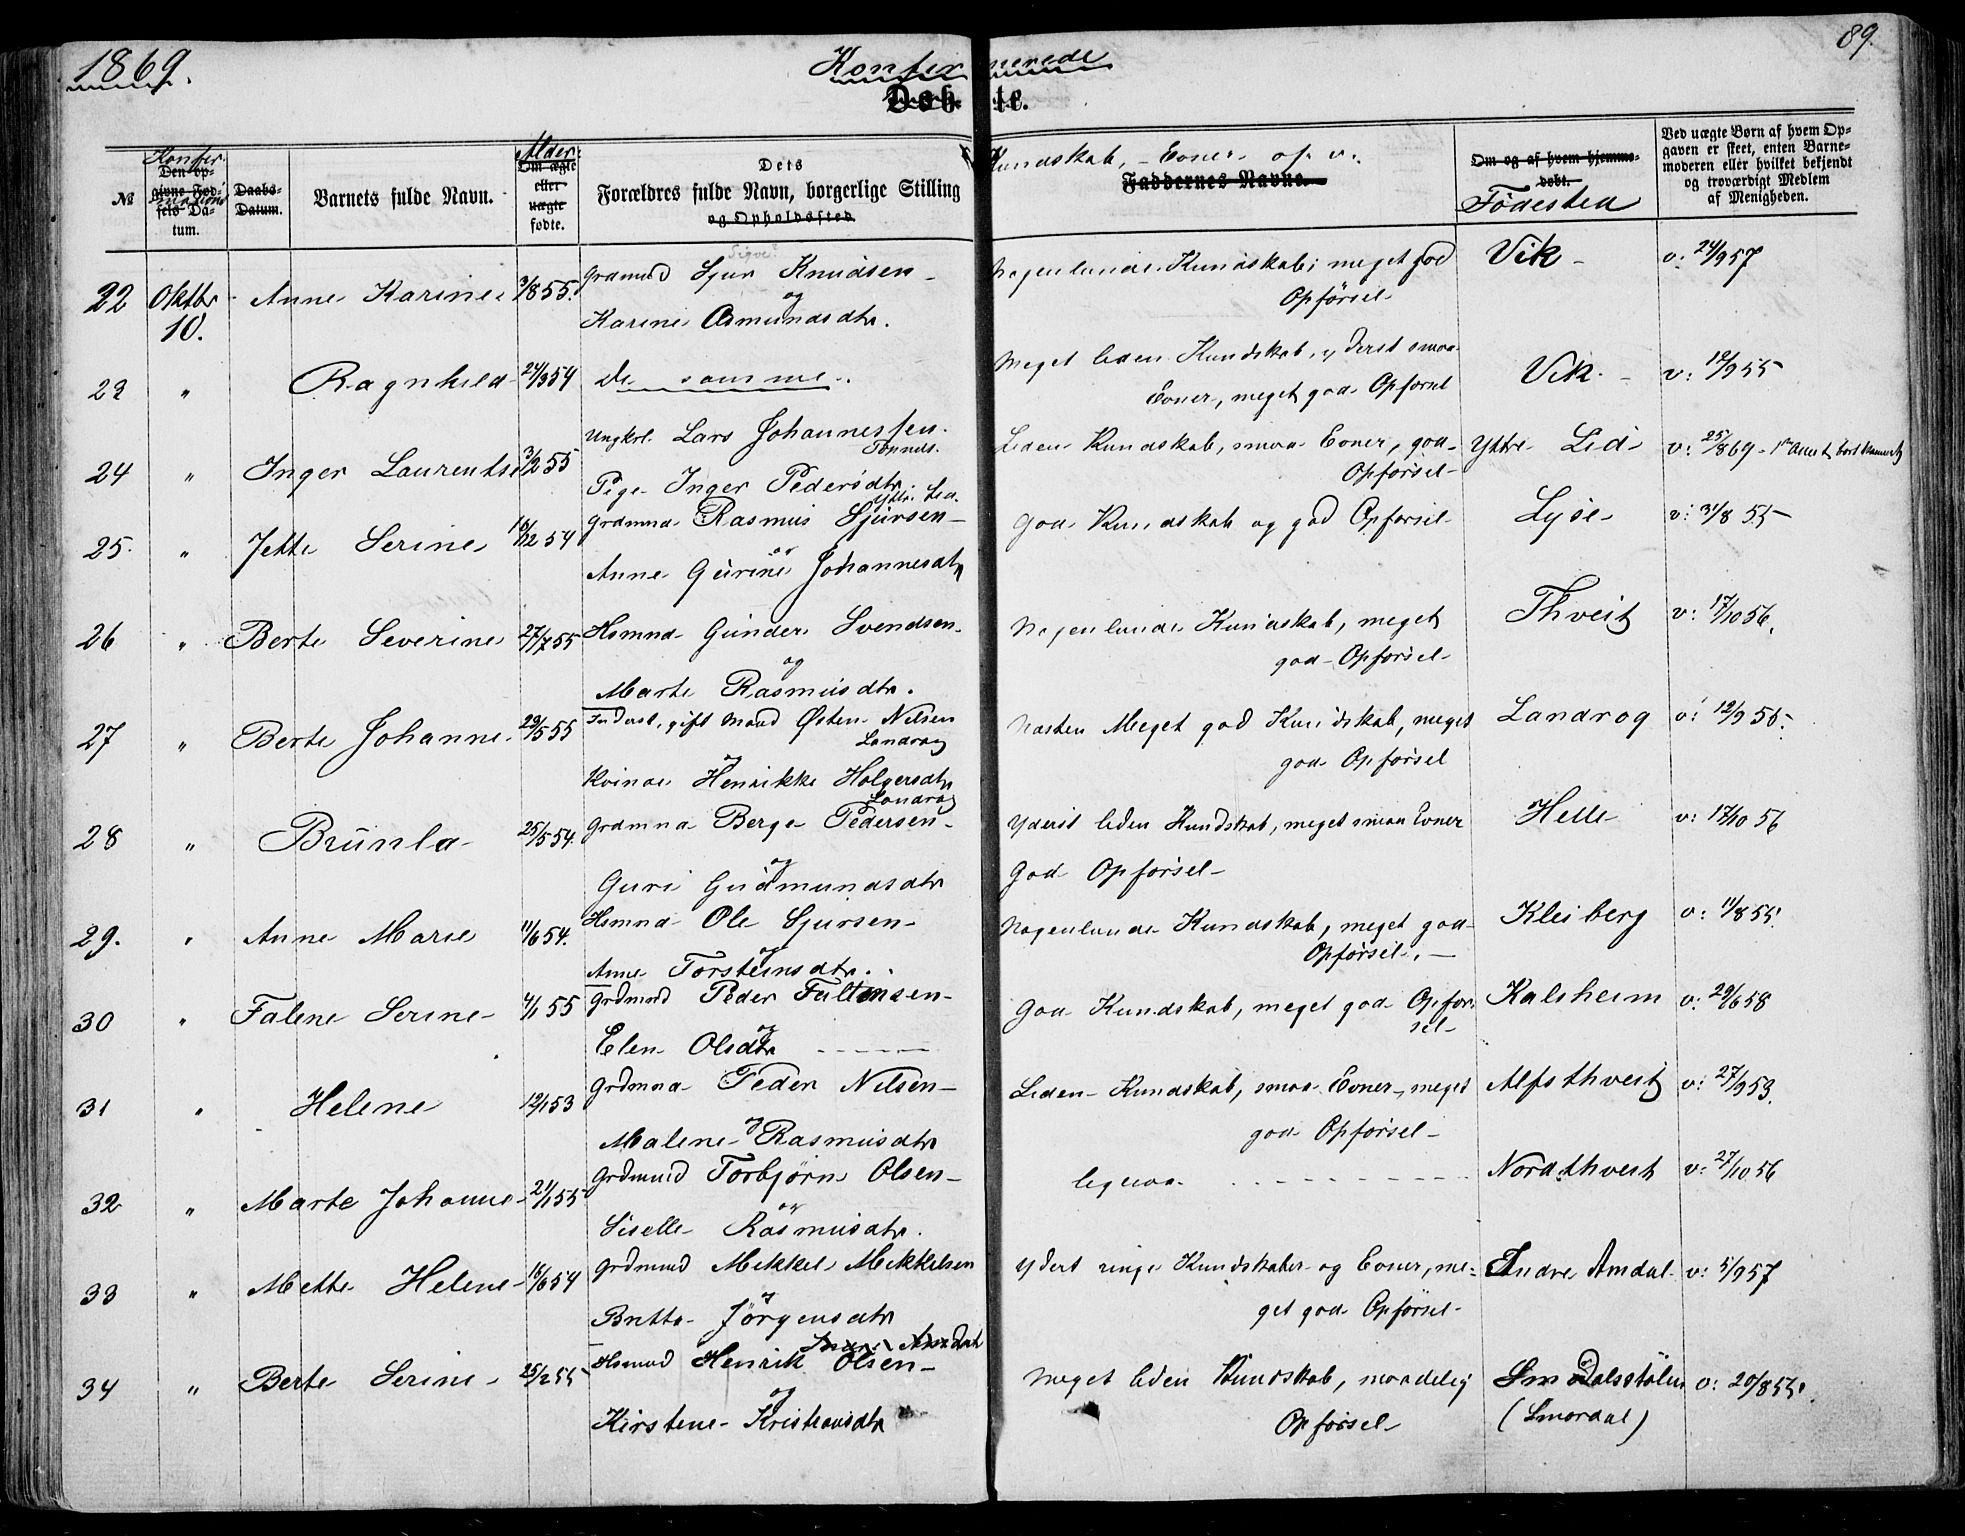 1869.
Konfirmerede
Døbte.
89.
№
Konfirmations
Den op-
givne Fød-
sels Da-
tum.
Daabs-
Datum.
Barnets fulde Navn.
Alder
Om ægte
eller
uægte
fødte.
Dets
Forældres fulde Navn, borgerlige Stilling
og Opholdssted.
Kundskab, Evner o. s. v.
Faddernes Navne.
Om og af hvem hjemme-
døbt.
Fødested
Ved uægte Børn af hvem Op-
gaven er skeet, enten Barne-
moderen eller hvilket bekjendt
og troværdigt Medlem
af Menigheden.
22 Oktbr 10. Anne Karine 3/8 55. Grdmnd Sjur Knudsen
og
Karine Asmundsdtr. Nogenlunde Kundskab, meget god
Opförsel Vik v: 24/9 57
23 " Ragnhild 24/3 54 de samme. Meget liden Kundskab, yderst smaa
Evner, meget god Opförsel Vik v: 12/9 55
24 " Inger Laurentse 3/2 55 Ungkrl. Lars Johannessen
Pige Inger Pedersdtr.
Ytre Lid. Liden Kundskab, smaa Evner, god
Opförsel Yttre Lid v: 25/8 69
25. " Jette Serine 16/12 54 Grdmnd Rasmus Sjursen
og
Anne Gurine Johannesdtr God Kundskab og god Opförsel Lyse v: 31/8 55
26 " Berte Severine 27/7 55 Hsmnd Gunder Svendsen
og
Marte Rasmusdtr. Nogenlunde Kundskab, meget
god Opförsel Thveit v: 17/10 56.
27 " Berte Johanne 29/5 55 Inderst, gift Mand Østen Nilsen
Landrog
og
Kvinde Henrikke Holgersdtr
Landrog Næsten Meget god Kundskab, meget
god Opförsel Landrog v: 12/9 55
28 " Brünla 25/5 54. Grdmnd Berge Pedersen
og
Guri Gudmundsdtr Yderst liden Kundskab, meget smaa Evner
God Opförsel Helle v: 17/10 56
29. " Anne Marie 11/6 54. Hsmnd Ole Sjursen
og
Anne Torsteinsdtr. Nogenlunde Kundskab, meget god
Opförsel. Kleiberg v: 11/8 55.
30 " Falene Serine 4/1 55 Grdmnd Peder Faltinsen
og
Elen Olsdtr God Kundskab, meget god Opför-
sel Kalsheim v: 29/6 58
31 " Helene 12/1 53 Grdmnd Peder Nilsen
og
Malene Rasmusdtr Liden Kundskab, smaa Evner, meget
god Opförsel Alfsthveit v: 27/9 53.
32 " Marte Johanne 21/1 55 Grdmnd Torbjørn Olsen
og
Siselle Rasmusdtr. ligesaa Nordthveit v: 27/10 56
33 " Mette Helene 16/6 54 Grdmnd Mikkel Mikkelsen
og
Britta Jörgensdtr
Indre Amdal Yderst ringe Kundskaber og Evner, me-
get god Opförsel Indre Amdal v: 5/9 57
34 " Berte Serine 25/2 55 Hsmnd Henrik Olsen
og
Kirstene Kristiansdtr Meget liden Kundskab, maadelig
Opförsel Smådalsstölen
(Smørdal) v: 20/8 55.